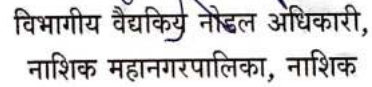 विभागीय वैद्यकिय नोडल अधिकारी,
नाशिक महानगरपालिका, नाशिक